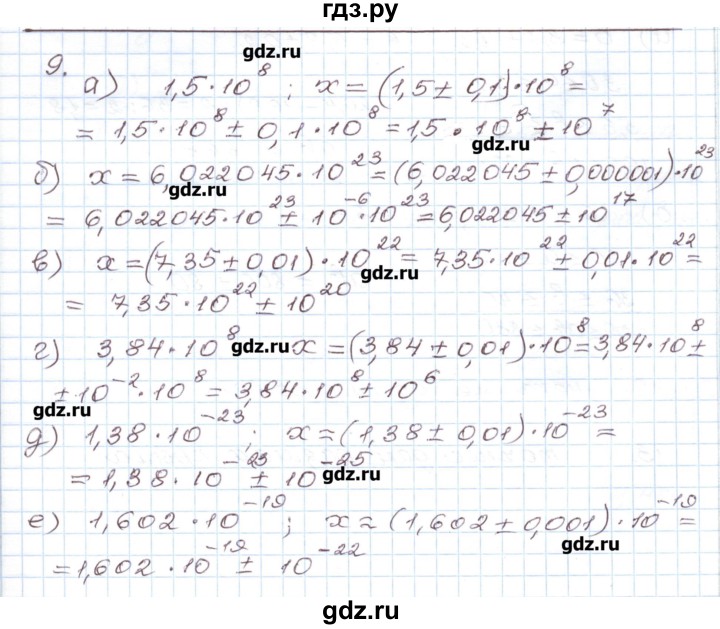 гдз.ру
gdz.ru
9. а) 1,5·10⁸ ; x = (1,5 ± 0,1)·10⁸ =
= 1,5·10⁸ ± 0,1·10⁸ = 1,5·10⁸ ± 10⁷
gdz.ru
б) x = 6,022045·10²³ = (6,022045 ± 0,000001)·10²³
gdz.ru
= 6,022045·10²³ ± 10⁻⁶·10²³ = 6,022045 ± 10¹⁷
в) x = (7,35 ± 0,01)·10²² = 7,35·10²² ± 0,01·10²² =
gdz.ru
= 7,35·10²² ± 10²⁰
г) 3,84·10⁸ gdz.ru x = (3,84 ± 0,01)·10⁸ = 3,84·10⁸ ±
± 10⁻²·10⁸ = 3,84·10⁸ ± 10⁶
gdz.ru
д) 1,38·10⁻²³ ; x = (1,38 ± 0,01)·10⁻²³ =
= 1,38·10⁻²³ ± 10⁻²⁵
gdz.ru
е) 1,602·10⁻¹⁹ ; x = (1,602 ± 0,001)·10⁻¹⁹ =
gdz.ru
= 1,602·10⁻¹⁹ ± 10⁻²²
gdz.ru